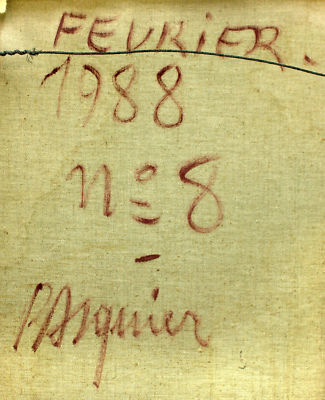 FEVRIER.
1988
nº 8
-
PAsquier